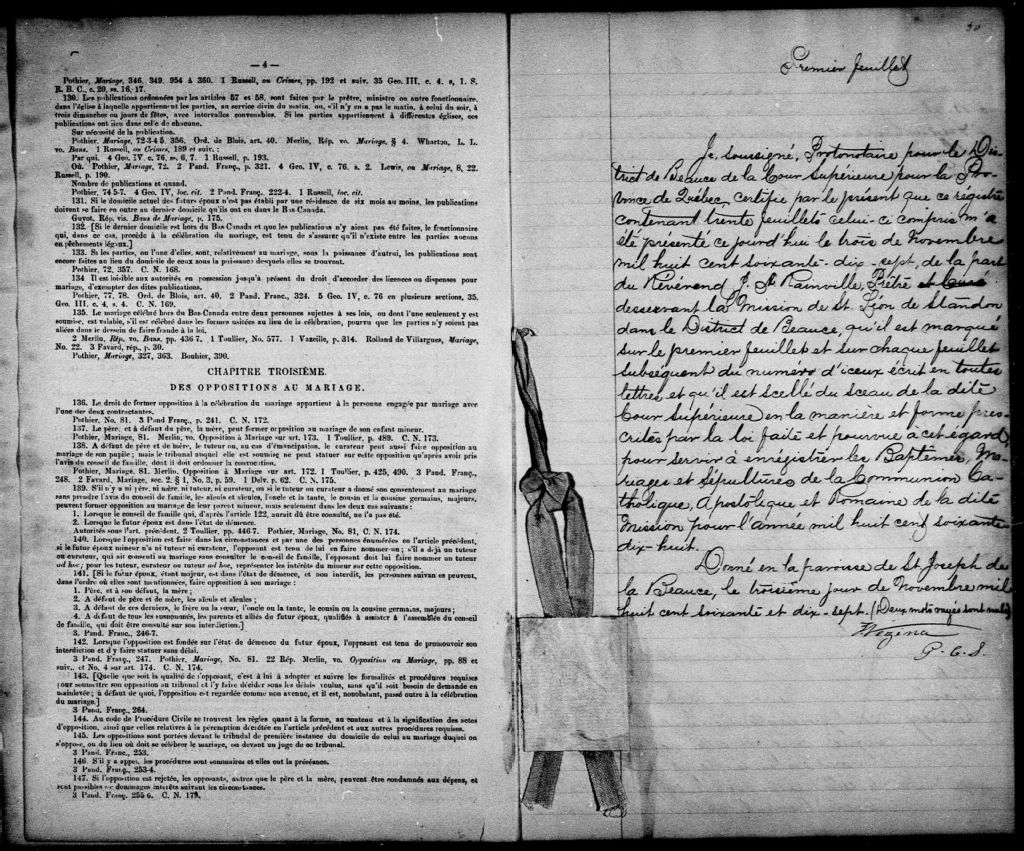 — 4 —
Pothier, Mariage, 346, 349, 954 à 360. 1 Russell, on Crimes, pp. 192 et suiv. 35 Geo. III, c. 4. s, 1. S.
R. B. C., c. 20, ss. 16, 17.
130. Les publications ordonnées par les articles 57 et 58, sont faites par le prêtre, ministre ou autre fonctionnaire,
dans l'église à laquelle appartiennent les parties, au service divin du matin, ou, s'il n'y en a pas le matin, à celui du soir, à
trois dimanches ou jours de fêtes, avec intervalles convenables. Si les parties appartiennent à différentes églises, ces
publications ont lieu dans celle de chacune.
Sur nécessité de la publication.
Pothier, Mariage, 72-3-4-5, 356. Ord. de Blois, art. 40. Merlin, Rép. vo. Mariage, § 4. Wharton, L. L.
vo. Bans. 1 Russell, on Crimes, 189 et suiv. :
Par qui. 4 Geo. IV, c. 76, ss. 6, 7. 1 Russell, p. 193.
Où. Pothier, Mariage, 72. 2 Pand. Franç., p. 321. 4 Geo. IV, c. 76, s. 2. Lewis, on Mariage, 8, 22.
Russell, p. 190.
Nombre de publications et quand.
Pothier, 74 5-7. 4 Geo. IV, loc. cit. 2 Pand. Franç., 222-4. 1 Russell, loc. cit.
131. Si le domicile actuel des futurs époux n'est pas établi par une résidence de six mois au moins, les publications
doivent se faire en outre au dernier domicile qu'ils ont eu dans le Bas Canada.
Guyot, Rép. vis. Bans de Mariage, p. 175.
132. [Si le dernier domicile est hors du Bas Canada et que les publications n'y aient pas été faites, le fonctionnaire
qui, dans ce cas, procède à la célébration du mariage, est tenu de s'assurer qu'il n'existe entre les parties aucuns
empêchements légaux.]
133. Si les parties, ou l'une d'elles, sont, relativement au mariage, sous la puissance d'autrui, les publications sont
encore faites au lieu du domicile de ceux sous la puissance desquels elles se trouvent.
Pothier, 72, 357. C. N. 168.
134 Il est loisible aux autorités en possession jusqu'à présent du droit d'accorder des licences ou dispenses pour
mariage, d'exempter des dites publications.
Pothier, 77, 78. Ord. de Blois, art. 40. 2 Pand. Franç., 324. 5 Geo. IV, c. 76 en plusieurs sections, 35.
Geo. III, c. 4, s. 4. C. N. 169.
135. Le mariage célébré hors du Bas-Canada entre deux personnes sujettes à ses lois, ou dont l'une seulement y est
soumise, est valable, s'il est célébré dans les formes usitées au lieu de la célébration, pourvu que les parties n'y soient pas
allées dans le dessein de faire fraude à la loi.
2 Merlin, Rép. vo. Bans, pp. 436 7. 1 Toullier, No. 577. 1 Vazeille, p. 314. Rolland de Villargues, Mariage,
No. 22. 3 Favard, rép., p. 30.
Pothier, Mariage, 327, 363. Bouhier, 390.
CHAPITRE TROISIÈME.
DES OPPOSITIONS AU MARIAGE.
136. Le droit de former opposition à la célébration du mariage appartient à la personne engagée par mariage avec
l'une des deux contractantes.
Pothier, No. 81. 3 Pand Franç., p. 241. C. N. 172.
137. Le père, et à défaut du père, la mère, peut former opposition au mariage de son enfant mineur.
Pothier, Mariage, 81. Merlin, vo. Opposition à Mariage sur art. 173. 1 Toullier, p. 489. C. N. 173.
138. A défaut de père et de mère, le tuteur, ou, au cas d'émancipation, le curateur peut aussi former opposition au
mariage de son pupille ; mais le tribunal auquel elle est soumise ne peut statuer sur cette opposition qu'après avoir pris
l'avis du conseil de famille, dont il doit ordonner la convocation.
Pothier, Mariage, 81. Merlin, Opposition à Mariage sur art. 172. 1 Toullier, p. 425, 490. 3 Pand. Franç.,
248. 2 Favard, Mariage, sec. 2, § 1, No. 3, p. 59. 1 Delv. p. 62. C. N. 175.
139. S'il n'y a ni père, ni mère, ni tuteur, ni curateur, ou si le tuteur ou curateur a donné son consentement au mariage
sans prendre l'avis du conseil de famille, les aïeuls et aïeules, l'oncle et la tante, le cousin et la cousine germains, majeurs,
peuvent former opposition au mariage de leur parent mineur, mais seulement dans les deux cas suivants :
1. Lorsque le conseil de famille qui, d'après l'article 122, aurait dû être consulté, ne l'a pas été.
2. Lorsque le futur époux est dans l'état de démence.
Autorités sous l'art. précédent. 2 Toullier, pp. 446 7. Pothier, Mariage, No. 81, C. N. 174.
140. Lorsque l'opposition est faite dans les circonstances et par une des personnes énumérées en l'article précédent,
si le futur époux mineur n'a ni tuteur ni curateur, l'opposant est tenu de lui en faire nommer un ; s'il a déjà un tuteur
ou curateur, qui ait consenti au mariage sans consulter le conseil de famille, l'opposant doit lui faire nommer un tuteur
ad hoc ; pour les tuteur, curateur ou tuteur ad hoc, représenter les intérêts du mineur sur cette opposition.
141. [Si le futur époux, étant majeur, est dans l'état de démence, et non interdit, les personnes suivantes peuvent,
dans l'ordre où elles sont mentionnées, faire opposition à son mariage :
1. Père, et à son défaut, la mère ;
2. A défaut de père et de mère, les aïeuls et aïeules ;
3. A défaut de ces derniers, le frère ou la sœur, l'oncle ou la tante, le cousin ou la cousine germains, majeurs ;
4. A défaut de tous les susnommés, les parents et alliés du futur époux, qualifiés à assister à l'assemblée du conseil
de famille, qui doit être consulté sur son interdiction.]
3. Pand. Franç., 246-7.
142. Lorsque l'opposition est fondée sur l'état de démence du futur époux, l'opposant est tenu de promouvoir son
interdiction et d'y faire statuer sans délai.
3 Pand. Franç., 247. Pothier, Mariage, No. 81. 22 Rép. Merlin, vo. Opposition au Mariage, pp. 88 et
suiv., et No. 4 sur art. 174. C. N. 174.
143. [Quelle que soit la qualité de l'opposant, c'est à lui à adopter et suivre les formalités et procédures requises
pour soumettre son opposition au tribunal et l'y faire décider sous les délais voulus, sans qu'il soit besoin de demande en
mainlevée ; à défaut de quoi, l'opposition est regardée comme non avenue, et il est, nonobstant, passé outre à la célébration
du mariage.]
3 Pand. Franç., 264.
144. Au code de Procédure Civile se trouvent les règles quant à la forme, au contenu et à la signification des actes
d'opposition, ainsi que celles relatives à la péremption décrétée en l'article précédent et aux autres procédures requises.
145. Les oppositions sont portées devant le tribunal de première instance du domicile de celui au mariage duquel on
s'oppose, ou du lieu où doit se célébrer le mariage, ou devant un juge de ce tribunal.
3 Pand. Franc., 253.
146. S'il y a appel, les procédures sont sommaires et elles ont la préséance.
3 Pand. Franç., 253-4.
147. Si l'opposition est rejetée, les opposants, autres que le père et la mère, peuvent être condamnés aux dépens, et
sont passibles de dommages intérêts suivant les circonstances.
3 Pand. Franç., 255 6. C. N. 179.
Premier feuillet
Je, soussigné, Protonotaire pour le Dis-
trict de Beauce de la Cour Supérieure pour la Pro-
vince de Québec, certifie par le présent que ce régistre
contenant trente feuillets celui-ci compris m'a
été présenté ce jourd'hui le trois de Novembre
mil huit cent soixante-dix-sept, de la part
du Révérend J. A. Rainville, Prêtre et Curé
desservant la Mission de St. Léon de Standon
dans le District de Beauce, qu'il est marqué
sur le premier feuillet et sur chaque feuillet
subséquent du numéro d'iceux écrit en toutes
lettres, et qu'il est scellé du sceau de la dite
Cour Supérieure en la manière et forme pres-
crites par la loi faite et pourvue à cet égard,
pour servir à enrégistrer les Baptêmes, Ma-
riages et Sépultures de la Communion Ca-
tholique, Apostolique et Romaine de la dite
Mission pour l'année mil huit cent soixante
dix-huit.
Donné en la paroisse de St Joseph de
la Beauce, le troisième jour de Novembre mil
huit cent soixante et dix-sept. (Deux mots rayés sont nuls)
P. C. S.